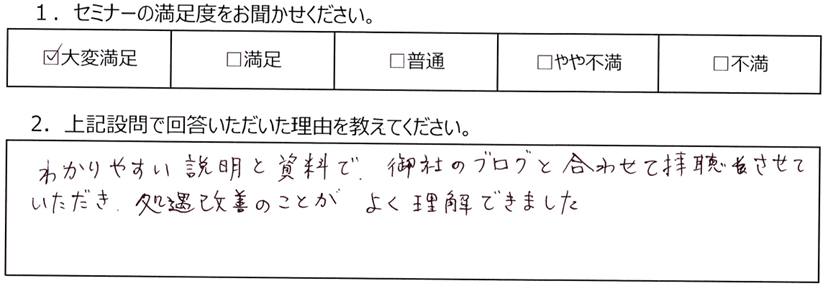 1．セミナーの満足度をお聞かせください。
☑大変満足 □満足 □普通 □やや不満 □不満
2．上記設問で回答いただいた理由を教えてください。
わかりやすい説明と資料で、御社のブログと合わせて拝聴させて
いただき、処遇改善のことが よく理解できました